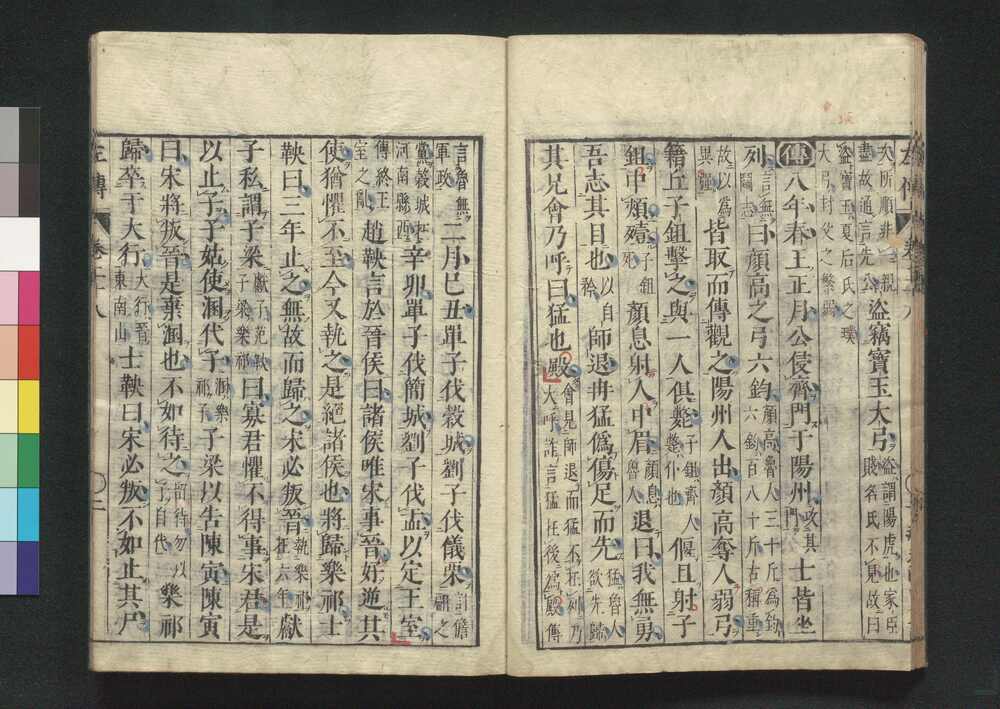 次所順非一親
盡故通言先公
盜竊寶玉大弓
盜謂陽虎也家臣
賤名氏不見故曰
盜寶玉夏后氏之璜
大弓封父之繁弱
傳八年春王正月公侵齊門于陽州
攻其
門
士皆坐
列
言無
鬬志
曰顏高之弓六鈞
顏高魯人三十斤爲鈞
六鈞百八十斤古稱重
故以爲
異強
皆取而傳觀之陽州人出顏高奪人弱弓
籍丘子鉏擊之與一人俱斃
子鉏齊人
斃仆也
偃且射子
鉏中頰殪
子鉏
死
顏息射人中眉
顏息
魯人
退曰我無勇
吾志其目也
以自
矜
師退冉猛僞傷足而先
猛魯人
欲先歸
其兄會乃呼曰猛也殿
會見師退而猛不在列乃
大呼詐言猛在後爲殿傳
言魯無
軍政
二月己丑單子伐穀城劉子伐儀栗
討儋
翩之
黨穀城在
河南縣西
辛卯單子伐簡城劉子伐盂以定王室
傳終王
室之亂
趙鞅言於晉侯曰諸侯唯宋事晉好逆其
使猶懼不至今又執之是絕諸侯也將歸樂祁士
鞅曰三年止之無故而歸之宋必叛晉
執樂祁
在六年
獻
子私謂子梁
獻子范鞅
子梁樂祁
曰寡君懼不得事宋君是
以止子子姑使溷代子
溷樂
祁子
子梁以告陳寅陳寅
曰宋將叛晉是棄溷也不如待之
留待勿以
子自代
樂祁
歸卒于大行
大行晉
東南山
士鞅曰宋必叛不如止其尸
左傳